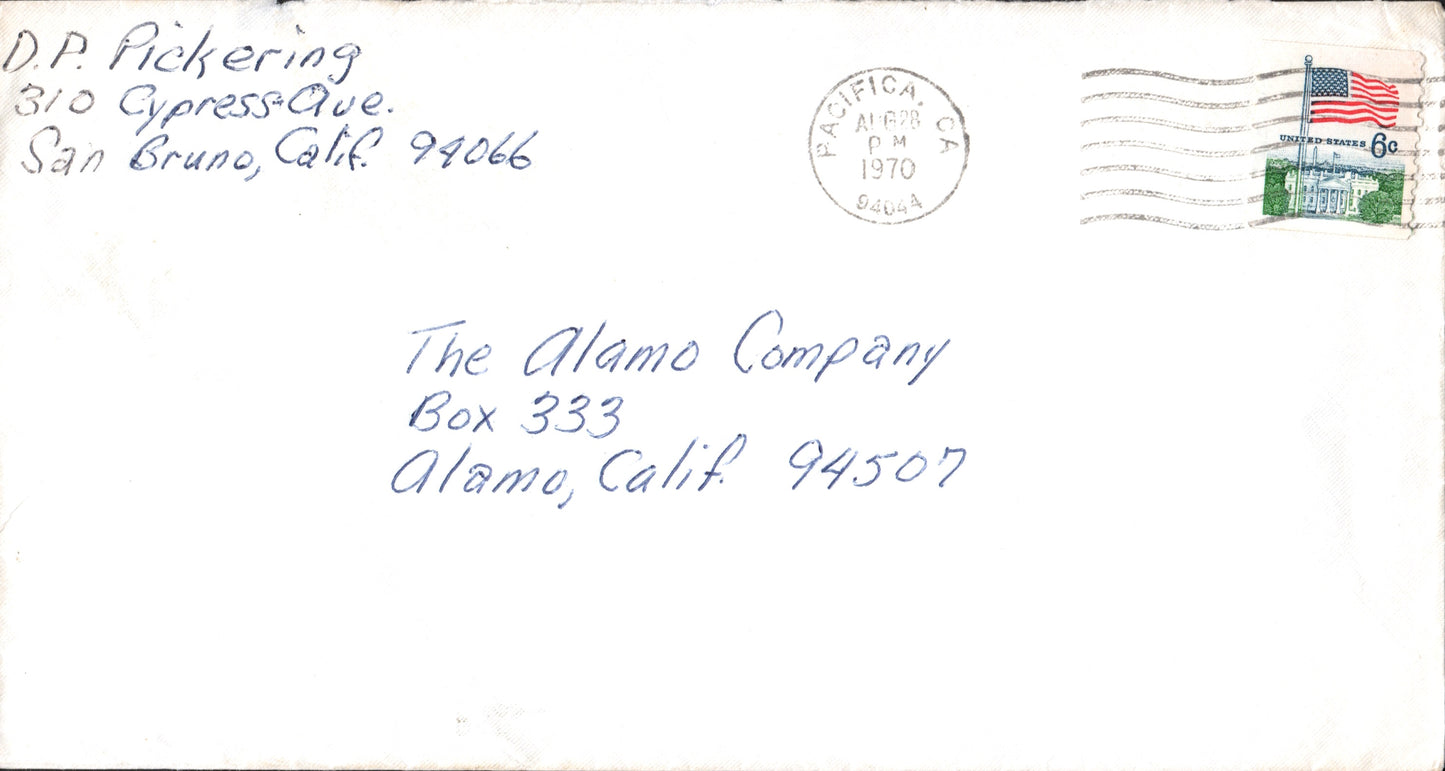 D.P. Pickering
310 Cypress Ave.
San Bruno, Calif. 94066
PACIFICA, CA
AUG 28
PM
1970
94044
UNITED STATES 6c
The Alamo Company
Box 333
Alamo, Calif. 94507